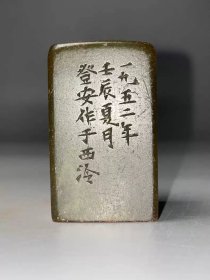 一九五二年
壬辰夏月
登安作于西泠